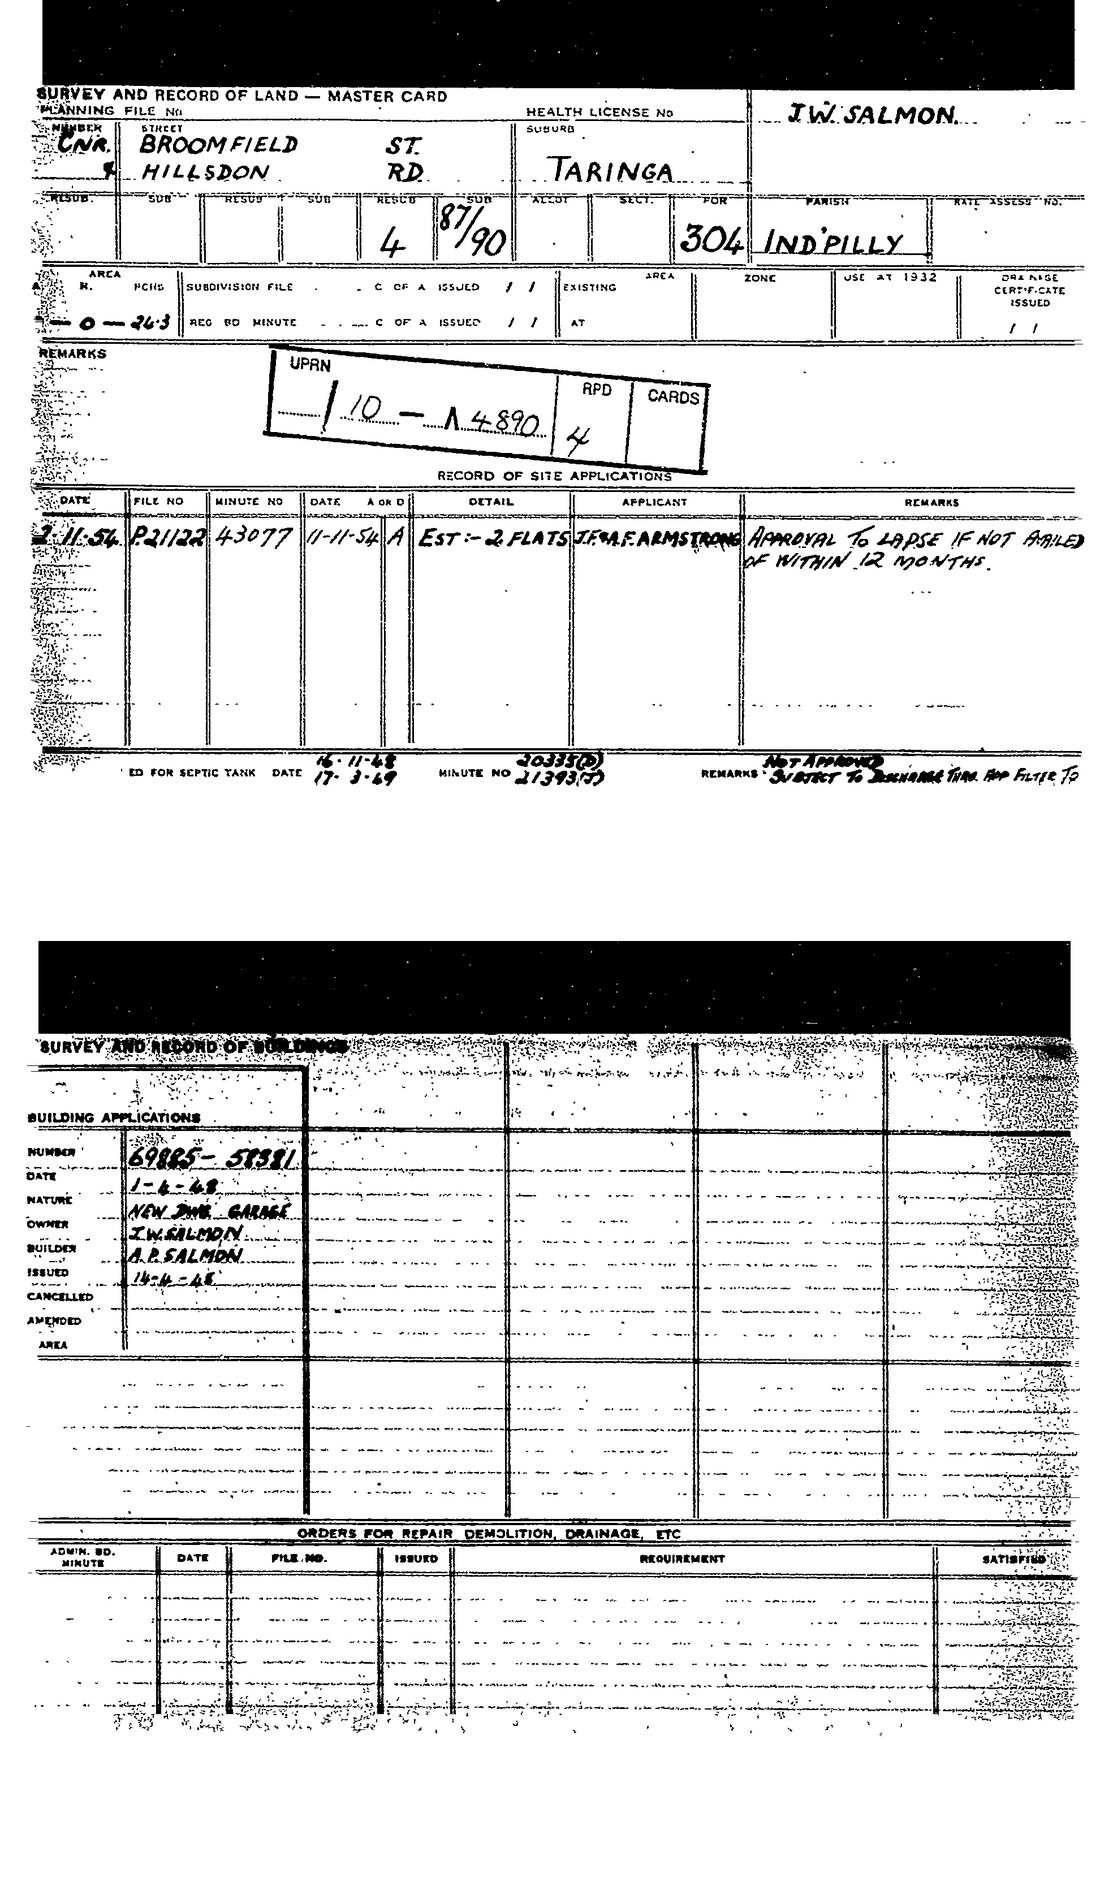 SURVEY AND RECORD OF LAND — MASTER CARD
PLANNING FILE No HEALTH LICENSE No J.W. SALMON.
NUMBER STREET SUBURB
CNR. BROOMFIELD ST.
& HILLSDON RD. TARINGA
RESUB. SUB RESUB SUB RESUB SUB ALLOT SECT. POR PARISH RATE ASSESS NO.
4 87/90 304 IND'PILLY
AREA
A R. PCHS SUBDIVISION FILE C OF A ISSUED / / EXISTING AREA ZONE USE AT 1932 DRAINAGE CERTIFICATE ISSUED
— 0 — 24·3 REG BD MINUTE C OF A ISSUED / / AT / /
REMARKS
UPRN RPD CARDS
/ 10 — 14890 4
RECORD OF SITE APPLICATIONS
DATE FILE NO MINUTE NO DATE A OR D DETAIL APPLICANT REMARKS
2·11·54 P.21122 43077 11-11-54 A EST:- 2 FLATS J.F.&A.F. ARMSTRONG APPROVAL TO LAPSE IF NOT AVAILED
OF WITHIN 12 MONTHS.
16·11·48 20335(D) NOT APPROVED
ED FOR SEPTIC TANK DATE 17·3·49 MINUTE NO 21393(J) REMARKS SUBJECT TO DISCHARGE THRO. APP FILTER TO
SURVEY AND RECORD OF BUILDINGS
BUILDING APPLICATIONS
NUMBER 69885 - 58381
DATE 1-4-48
NATURE NEW DWG GARAGE
OWNER J.W. SALMON
BUILDER A.P. SALMON
ISSUED 14-4-48
CANCELLED
AMENDED
AREA
ORDERS FOR REPAIR DEMOLITION, DRAINAGE, ETC
ADMIN. BD. MINUTE DATE FILE NO. ISSUED REQUIREMENT SATISFIED